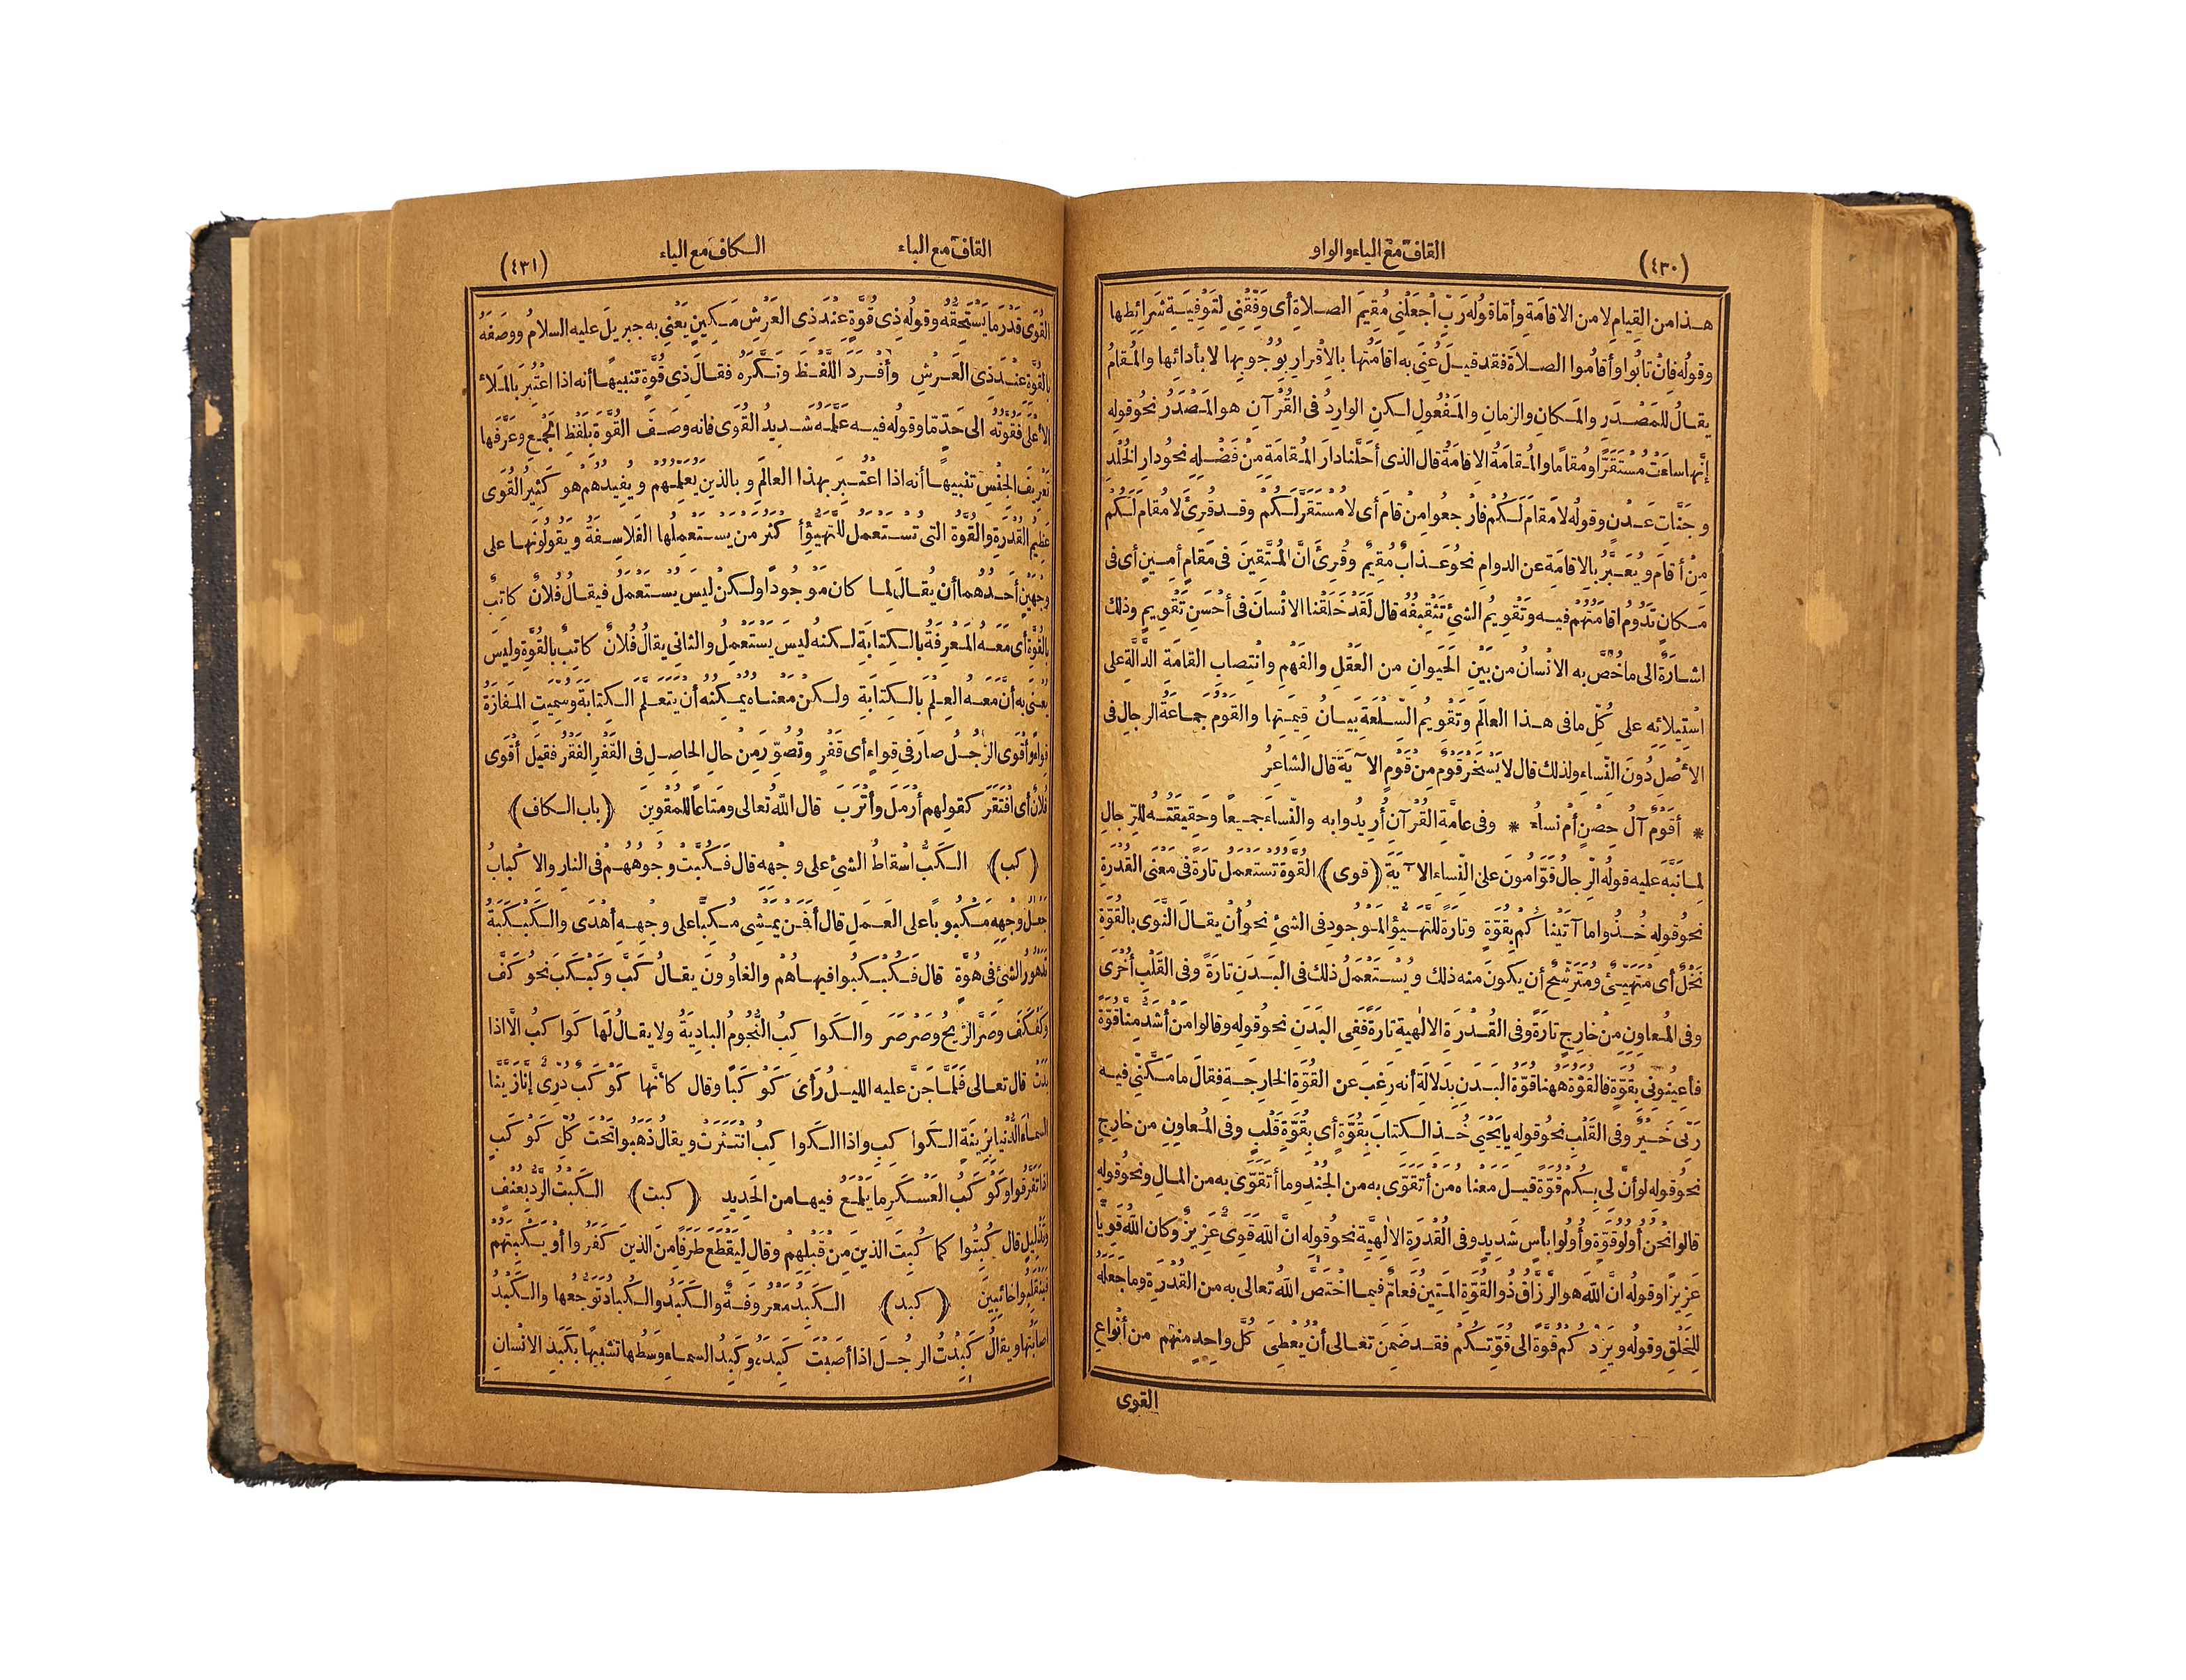 (٤٣٠)
القاف مع الياء والواو
هـذا من القِيامِ لا من الاقامَةِ وأمّا قولُه رَبِّ اجْعَلْنِي مُقِيمَ الصـلاةِ أى وَفِّقْنِي لِتَوْفِيَـةِ شَرائِطِها
وقولُه فاِنْ تابُوا وأقامُوا الصـلاةَ فقد قيـلَ عُنِىَ به اقامَتُها بالاِقْرارِ بِوُجُوبِها لا بأدائِها والمُـقامُ
يقـالُ للمَصْـدَرِ والمَـكانِ والزمانِ والمَـفْعُولِ لـكنِ الوارِدُ فى القُرْآنِ هو المَـصْدَرُ نحوُ قوله
إنَّها ساءَتْ مُسْتَقَرًّا ومُقامًا والمُـقامَةُ الاِقامَةُ قال الذى أحَلَّنا دَارَ المُـقامَةِ مِنْ فَضْـلِهِ نحوُ دارِ الخُلْدِ
وجَنَّاتِ عَـدْنٍ وقولُه لا مَقامَ لَـكُمْ فارْجعُوا مِنْ قامَ أى لا مُسْتَقَرَّ لَـكُمْ وقـد قُرِئَ لا مُقامَ لَـكُمْ
مِنْ أقامَ ويُعَـبَّرُ بالاِقامَةِ عن الدوامِ نحوُ عَـذابٌ مُقِيمٌ وقُرِئَ انَّ المُـتَّقِينَ فى مَقامٍ أمِـينٍ أى فى
مَـكانٍ تَدُومُ اقامَتُهُم فيـه وتَقْوِيمُ الشئِ تَثْقِيفُهُ قال لَقَدْ خَلَقْنا الانْسانَ فى أحْسَنِ تَقْوِيمٍ وذلك
اشـارَةً الى ماخُصَّ به الانْسانُ من بَيْنِ الحَيَوانِ من العَقْلِ والفَهْمِ وانْتِصابِ القامَةِ الدَّالَّةِ على
اسْتِيلائِه على كُلِّ مافى هـذا العالَمِ وتَقْوِيمُ السِّـلْعَةِ بَيـانُ قِيمَـتِها والقَومُ جمـاعَةُ الرجالِ فى
الأصْلِ دُونَ النِّساءِ ولذلك قال لا يَسْخَرْ قَوْمٌ مِنْ قَوْمٍ الآيَةَ قال الشاعرُ
* أقَوْمٌ آلُ حِصْنٍ أمْ نِساءُ * وفى عامَّةِ القُرْآنِ أُرِيدُوا به والنِّساءَ جميـعًا وحَقِيقَتُـهُ للرِّجالِ
لِمـا نَبَّهَ عليه قولُهُ الرِّجالُ قَوّامُونَ عَلَى النِّساءِ الآيَةَ (قوى) القُوَّةُ تُسْتَعمل تارَةً فى مَعْنَى القُدْرَةِ
نحوُ قوله خُـذُوا ما آتَيْنا كُمْ بِقُوَّةٍ وتارَةً للتَّهَـيُّؤِ المَـوْجُودِ فى الشئِ نحوُ أنْ يقـالَ النَّوَى بالقُوَّةِ
نَخْلٌ أى مُتَهَيِّئٌ ومُتَرَشِّحٌ أن يكونَ منه ذلك ويُسْـتَعْمَلُ ذلك فى البَـدَنِ تارَةً وفى القَلْبِ أُخْرَى
وفى المُـعاوِنِ مِنْ خارِجٍ تارَةً وفى القُـدْرَةِ الالٰهِيةِ تارَةً ففى البَدَنِ نحوُ قولِه وقالوا مَنْ أشَدُّ مِنَّا قُوَّةً
فأعِينُونِى بِقُوَّةٍ فالقُوَّةُ ههُنا قُوَّةُ البَـدَنِ بدَلالَةِ أنه رَغِبَ عن القُوَّةِ الخارِجَـةِ فقالَ ما مَكَّنِّى فيـه
رَبِّى خَـيْرٌ وفى القَلْبِ نحوُ قوله يا يَحْيَى خُـذِ الـكِتابَ بِقُوَّةٍ أى بِقُوَّةِ قَلْبٍ وفى المُـعاوِنِ من خارِجٍ
نحوُ قوله لو أنَّ لِى بِـكُمْ قُوَّةً قيـل مَعْناهُ مَنْ أتَقَوَّى به من الجُنْدِ وما أتَقَوَّى به من المـالِ ونحوُ قوله
قالوا نَحْنُ أُولُوا قُوَّةٍ وأُولُوا بأسٍ شَدِيدٍ وفى القُدْرَةِ الالٰهِيَّة نحوُ قولِه انَّ اللهَ قَوِىٌّ عَزِيزٌ وكان اللهُ قَوِيًّا
عَزِيزًا وقولُه انَّ اللهَ هو الرَّزَّاقُ ذُو القُوَّةِ المَـتِينُ فَعامٌّ فيمـا اخْتَصَّ اللهُ تعالى به من القُدْرَةِ وما جَعَلَهُ
لِلْخَلْقِ وقولُه ويَزِدْ كُمْ قُوَّةً الى قُوَّتِـكُمْ فقـد ضَمِنَ تعـالى أنْ يُعْطِىَ كُلَّ واحِدٍ منهم من أنْواعِ
القوى
القاف مع الياء
الـكاف مع الباء
(٤٣١)
القُوَى قَدْرَ ما يَسْتَحِقُّهُ وقولُه ذِى قُوَّةٍ عِنْدَ ذِى العَرْشِ مَـكِينٍ يَعْنِى به جبريلَ عليه السلامُ ووصَفَهُ
بالقُوَّةِ عِنْـدَ ذِى العَـرْشِ وأفْـرَدَ اللَّفْـظَ ونَـكَّرَه فقـالَ ذِى قُوَّةٍ تنبيهًـا أنه اذا اعْتُبِرَ بالمَـلإِ
الأعْلَى فَقُوَّتُهُ الى حَدٍّ مّا وقولُه فيـه عَلَّمَـهُ شَـدِيدُ القُوَى فانه وصَـفَ القُوَّةَ بلَفْظِ الجَمْـعِ وعَرَّفَها
تَعْرِيفَ الجِنْسِ تنبيهًـا أنه اذا اعْتُـبِرَ بهذا العالَمِ وبالذينَ يُعَلِّمُـهُمْ ويُفِيدُهم هو كَثِيرُ القُوَى
عَظِيمُ القُدْرَةِ والقُوَّةُ التى تُسْـتَعمَلُ للتَّهَيُّؤِ أكْثَرُ مَن يَسْـتَعْمِلُها الفَلاسِـفَةُ ويَقُولُونَهـا على
وجْهَيْنِ أحَـدُهُما أن يُقـالَ لِمـا كان مَوْجُودًا ولـكنْ ليسَ يُسْـتَعْمَلُ فيقـالُ فُلانٌ كاتِبٌ
بالقُوَّةِ أى مَعَـهُ المَـعْرِفَةُ بالـكِتابَةِ لـكنه ليسَ يَسْتَعْمِلُ والثانِى يقالُ فُلانٌ كاتِبٌ بالقُوَّةِ وليسَ
يُعْنَى به أنَّ مَعَـهُ العِـلْمَ بالـكِتابَةِ ولـكنْ مَعْنـاه يُمْـكِنُهُ أنْ يَتَعَلَّمَ الـكِتابَةَ وسُمِّيَتِ المَـفازَةُ
قِواءً وأقْوَى الرَّجُـلُ صارَ فى قِواءٍ أى قَفْرٍ وتُصُوِّرَ مِنْ حالِ الحاصِـلِ فى القَفْرِ الفَقْرُ فقيلَ أقْوَى
فُلانٌ أى افْتَقَرَ كقولِهم أرْمَلَ وأتْرَبَ قال اللهُ تعالى ومَتاعًا للمُقْوِينَ (باب الـكاف)
(كب) الـكَبُّ اسْقاطُ الشئِ على وجْهِهِ قال فَـكُبَّتْ وجُوهُهُـمْ فى النارِ والاكْبابُ
جَعْـلُ وجْهِهِ مَـكْبُوبًا على العَـمَلِ قال أفَمَـنْ يَمْـشِى مُـكِبًّا على وجْهِـهِ أهْدَى والـكَبْـكَبَةُ
تَدَهْوُرُ الشئِ فى هُوَّةٍ قال فَـكُبْـكِبُوا فيهـا هُمْ والغاوُونَ يقـالُ كَبَّ وكَبْـكَبَ نحوُ كَفَّ
وكَفْكَفَ وصَرَّ الرِّيحُ وصَرْصَرَ والـكَواكِبُ النُّجُومُ البادِيَةُ ولا يقـالُ لَها كَواكِبُ الَّا اذا
بَدَتْ قال تعـالى فَلَمَّـا جَنَّ عليه الليـلُ رَأى كَوْكَبًا وقال كأنَّها كَوْكَبٌ دُرِّىٌّ إنَّا زَيَّنَّا
السمـاءَ الدُّنْيا بِزِينَةٍ الـكَواكِبِ واذا الـكَواكِبُ انْتَـثَرَتْ ويقالُ ذَهَبُوا تَحْتَ كُلِّ كَوْكَبٍ
اذا تَفَرَّقُوا وكَوْكَبُ العَسْـكَرِ ما يَلْمَـعُ فيهـا من الحَدِيدِ (كبت) الـكَبْتُ الرَّدُّ بِعُنْفٍ
وتَذْلِيلٍ قال كُبِتُوا كما كُبِتَ الذينَ مِنْ قَبْلِهِمْ وقال لِيَقْطَعَ طَرَفًا مِنَ الذينَ كَفَرُوا أوْ يَـكْبِتَهُمْ
فَيَنْقَلِبُوا خائِبِينَ (كبد) الـكَبِدُ مَعْرُوفَـةٌ والـكَبَدُ والـكُبادُ تَوَجُّعُها والـكَبْدُ
اصابَتُها ويقالُ كَبِدْتُ الرجُـلَ اذا أصَبْتَ كَبِدَهُ وكَبِدُ السمـاءِ وسَطُها تشبيهًا بكَبِدِ الانْسانِ